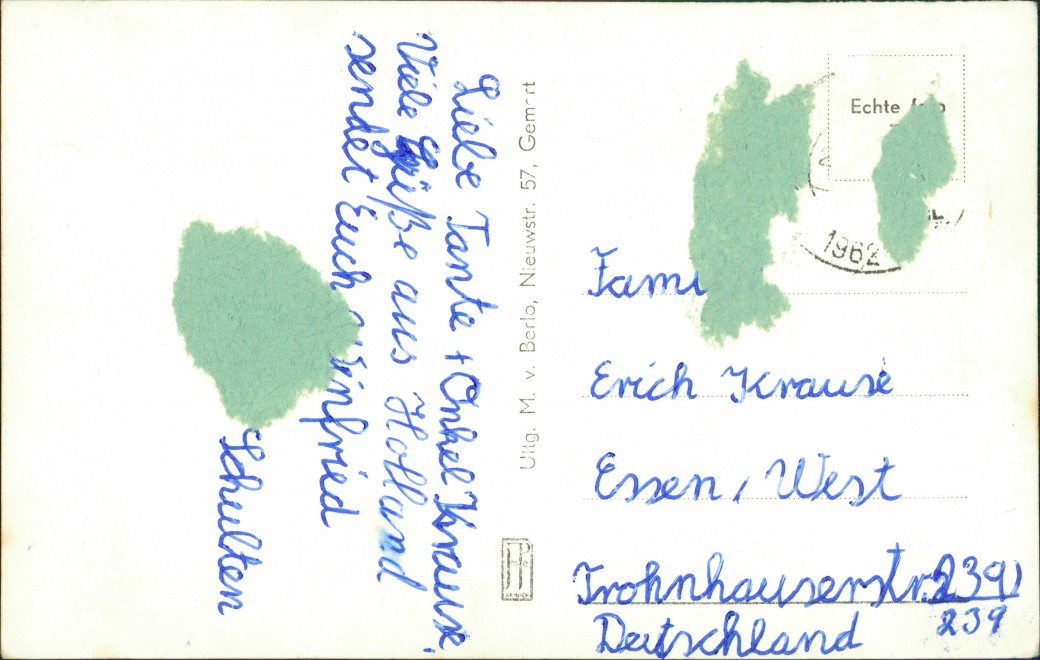 Liebe Tante + Onkel Krause,
Viele Grüße aus Holland
sendet Euch
Schulten
Uitg. M. v. Berlo, Nieuwstr. 57, Gemert
Echte
1962
Erich Krause
Essen, West
Frohnhauserstr. 239
239
Deutschland